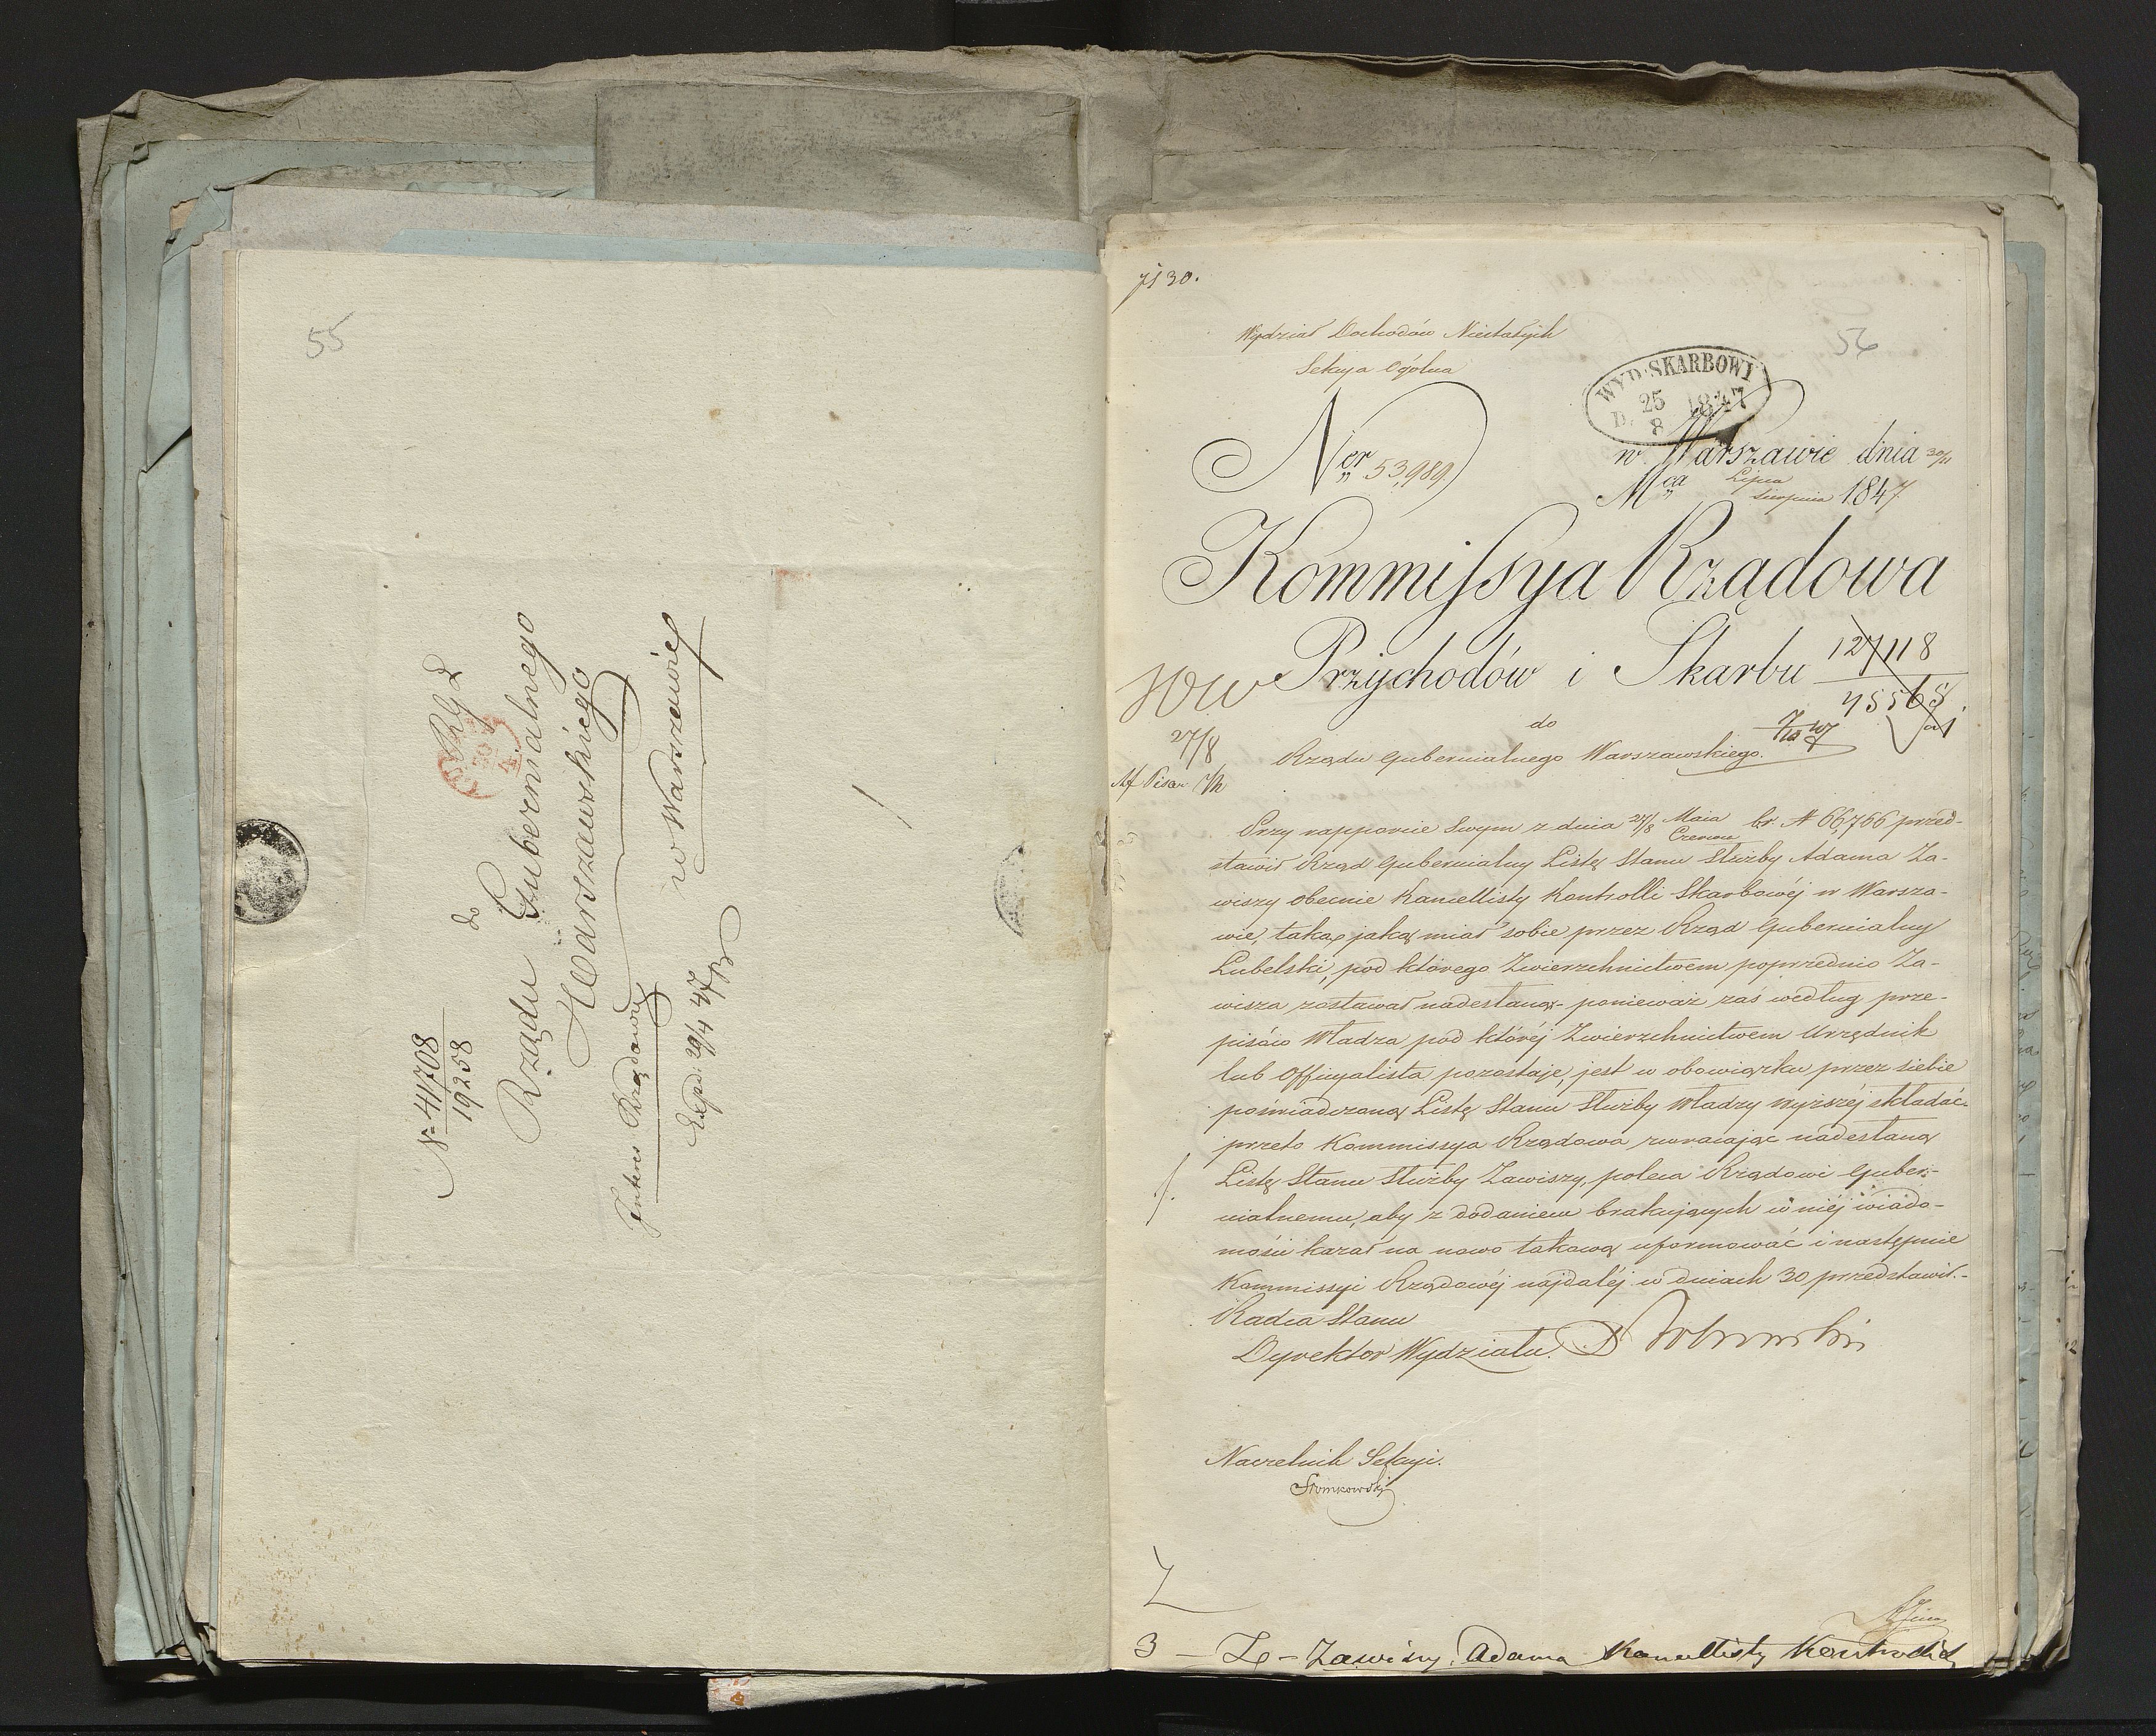 55
Nº 41708
19258
do
Rządu Gubernialnego
Warszawskiego
Interes Rządowy
w Warszawie
Exp: 29/4 47
7130.
56
Wydział Dochodów Niestałych
Sekcya Ogólna
WYD: SKARBOWY
D. 25/8 1847
Ner 53,989.
w Warszawie dnia 30/11
Mca Lipca
Sierpnia 1847
Kommissya Rządowa
Przychodów i Skarbu
127118
45565
27/8
do
Rządu Gubernialnego Warszawskiego.
Przy rapporcie Swym z dnia 27/8 Maia
Czerwca br. N 66766 przed-
stawił Rząd Gubernialny Listę Stanu Służby Adama Za-
wiszy obecnie Kancellisty Kontrolli Skarbowéj w Warsza-
wie, taką jaką miał sobie przez Rząd Gubernialny
Lubelski, pod którego Zwierzchnictwem poprzednio Za-
wisza zostawał nadesłaną - ponieważ zaś według prze-
pisów Władza pod któréj Zwierzchnictwem Urzędnik
lub Officyalista pozostaje, jest w obowiązku przez siebie
poświadczoną Listę Stanu Służby Władzy wyższéj składać
przeto Kommissya Rządowa zwracając nadesłaną
Listę Stanu Służby Zawiszy, poleca Rządowi Guber-
nialnemu, aby z dodaniem brakujących w niéj wiado-
mości kazał na nowo takową uformować i następnie
Kommissyi Rządowéj najdaléj w dniach 30 przedstawił.-
Radca Stanu
Dyrektor Wydziału.
Naczelnik Sekcyi.
Słomkowski
3 - Z - Zawiszy Adama Kancellisty Kontrolli